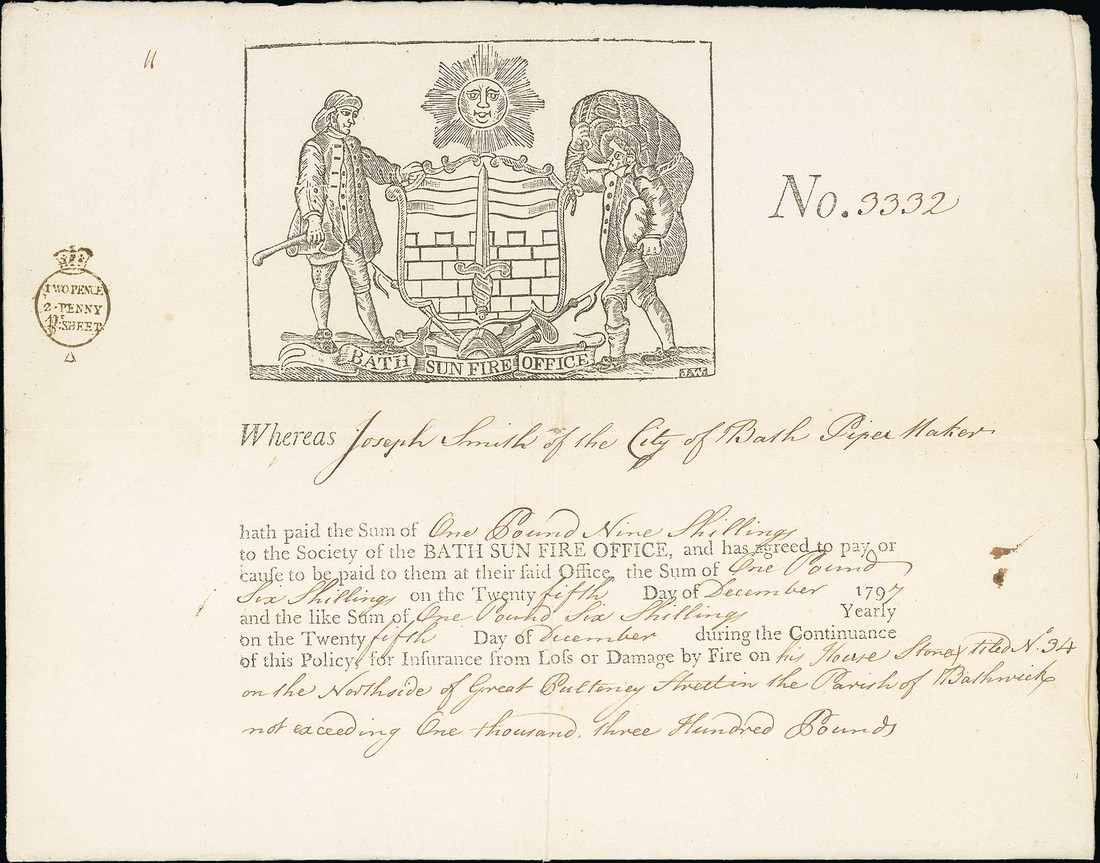 11
No. 3332
TWO PENCE
2-PENNY
Pr. SHEET
BATH SUN FIRE OFFICE
Whereas Joseph Smith of the City of Bath Piper Maker
hath paid the Sum of One Pound Nine Shillings
to the Society of the BATH SUN FIRE OFFICE, and has agreed to pay or
cauſe to be paid to them at their ſaid Office, the Sum of One Pound
Six Shillings on the Twenty fifth Day of December 1797
and the like Sum of One Pound Six Shillings Yearly
on the Twenty fifth Day of December during the Continuance
of this Policy, for Inſurance from Loſs or Damage by Fire on his House Stone & tiled No. 34
on the Northside of Great Pulteney Street in the Parish of Bathwick
not exceeding One thousand, three Hundred Pounds